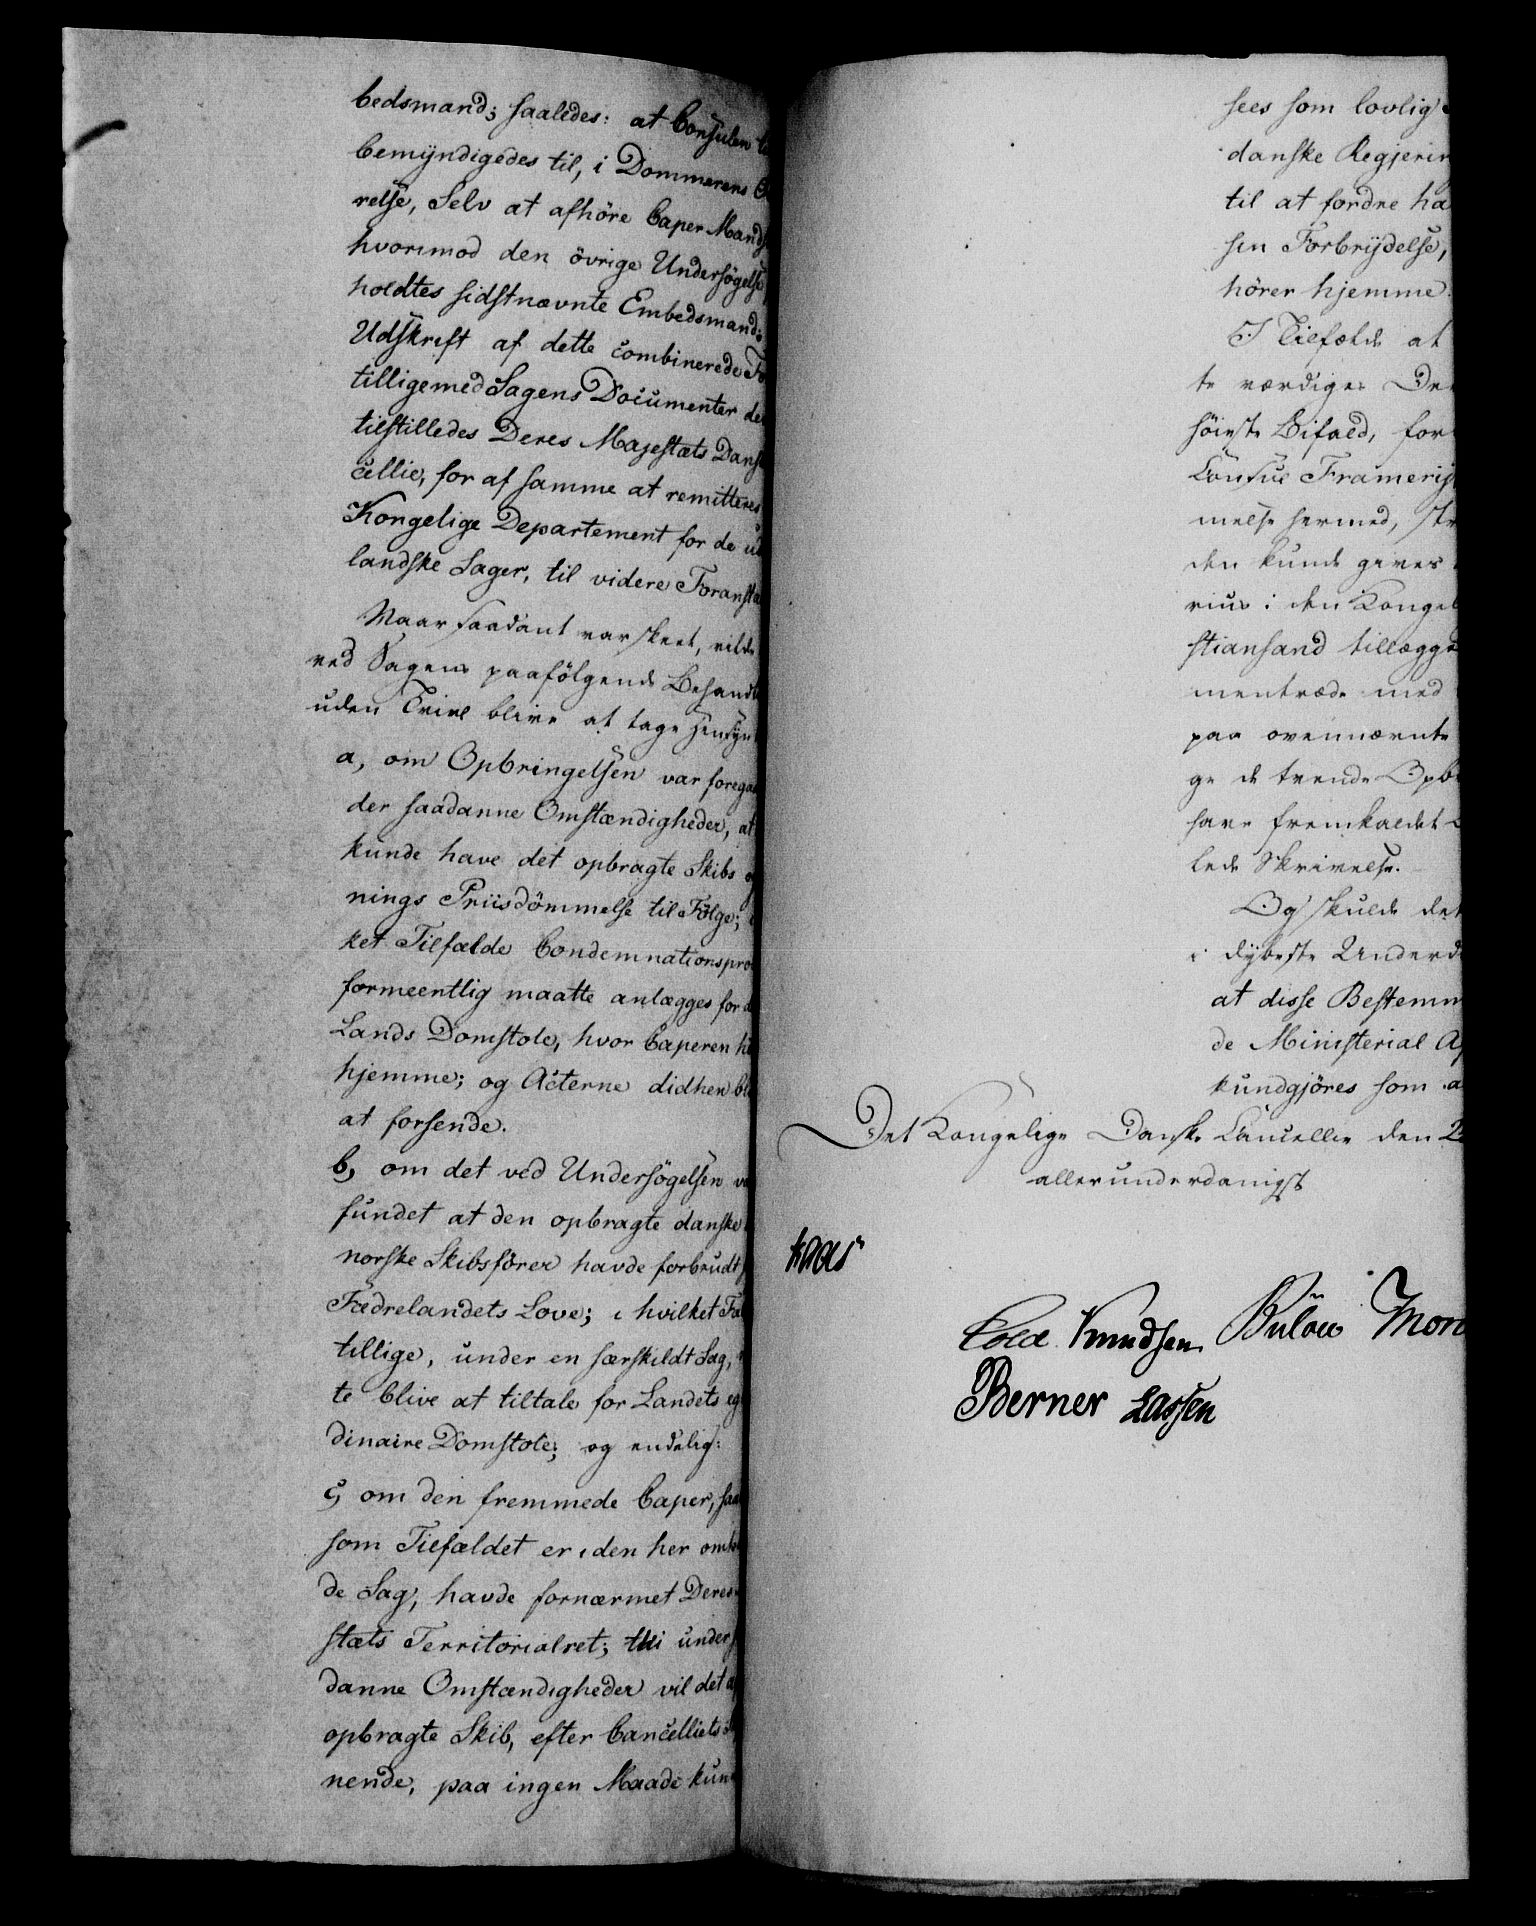 bedsmand; saaledes: at Consulen
bemyndigedes til, i Dommerens
relse, Selv at afhöre Caper Mand
hvorimod den övrige Undersögelse
holdtes sidstnævnte Embedsmand;
Udskrift af dette combinerede
tilligemed Sagens Documenter
tilstilledes Deres Majestæts Dans
cellie, for af samme at remitteres
Kongelige Departement for de u
landske Sager, til videre Foransta
Naar saadant var skeet, vilde
ved Sagens paafölgende Behand
uden Tvivl blive at tage Hensyn
a, om Opbringelsen var forega
der saadanne Omstændigheder, at
kunde have det opbragte Skibs
nings Priisdömmelse til Fölge;
ket Tilfælde Condemnationspro
formeentlig maatte anlægges for d
Lands Domstole, hvor Caperen h
hjemme; og Acterne didhen bl
at forsende.
b, om det ved Undersögelsen
fundet at den opbragte danske
norske Skibsförer havde forbrudt
Fædrelandets Love; i hvilket
tillige, under en særskildt Sag,
te blive at tiltale for Landets
dinaire Domstole; og endelig:
c, om den fremmede Caper, saa
som Tilfældet er i den her om
de Sag, havde fornærmet Deres
stæts Territorialret; thi under
danne Omstændigheder vil det
opbragte Skib, efter Cancelliets
nende, paa ingen Maade kun
sees som lovlig
danske Regjerin
til at fordre ha
sin Forbrydelse,
hörer hjemme.
I Tilfælde at
te værdiges De
höieste Bifald, for
Consul Framery
melse hermed, str
den kunde gives
rius i den Kongel
stiansand tillægge
mentræde med
paa ovennævnte
ge de trende Opb
have fremkaldet
lede Skrivelse.
Og skulde det
i dybeste Underd
at disse Bestemm
de Ministerial
kundgjöres som a
Det Kongelige Danske Cancellie den 2
allerunderdanigst
Kaas
Cold Knudsen Bülow Mon
Berner Lassen